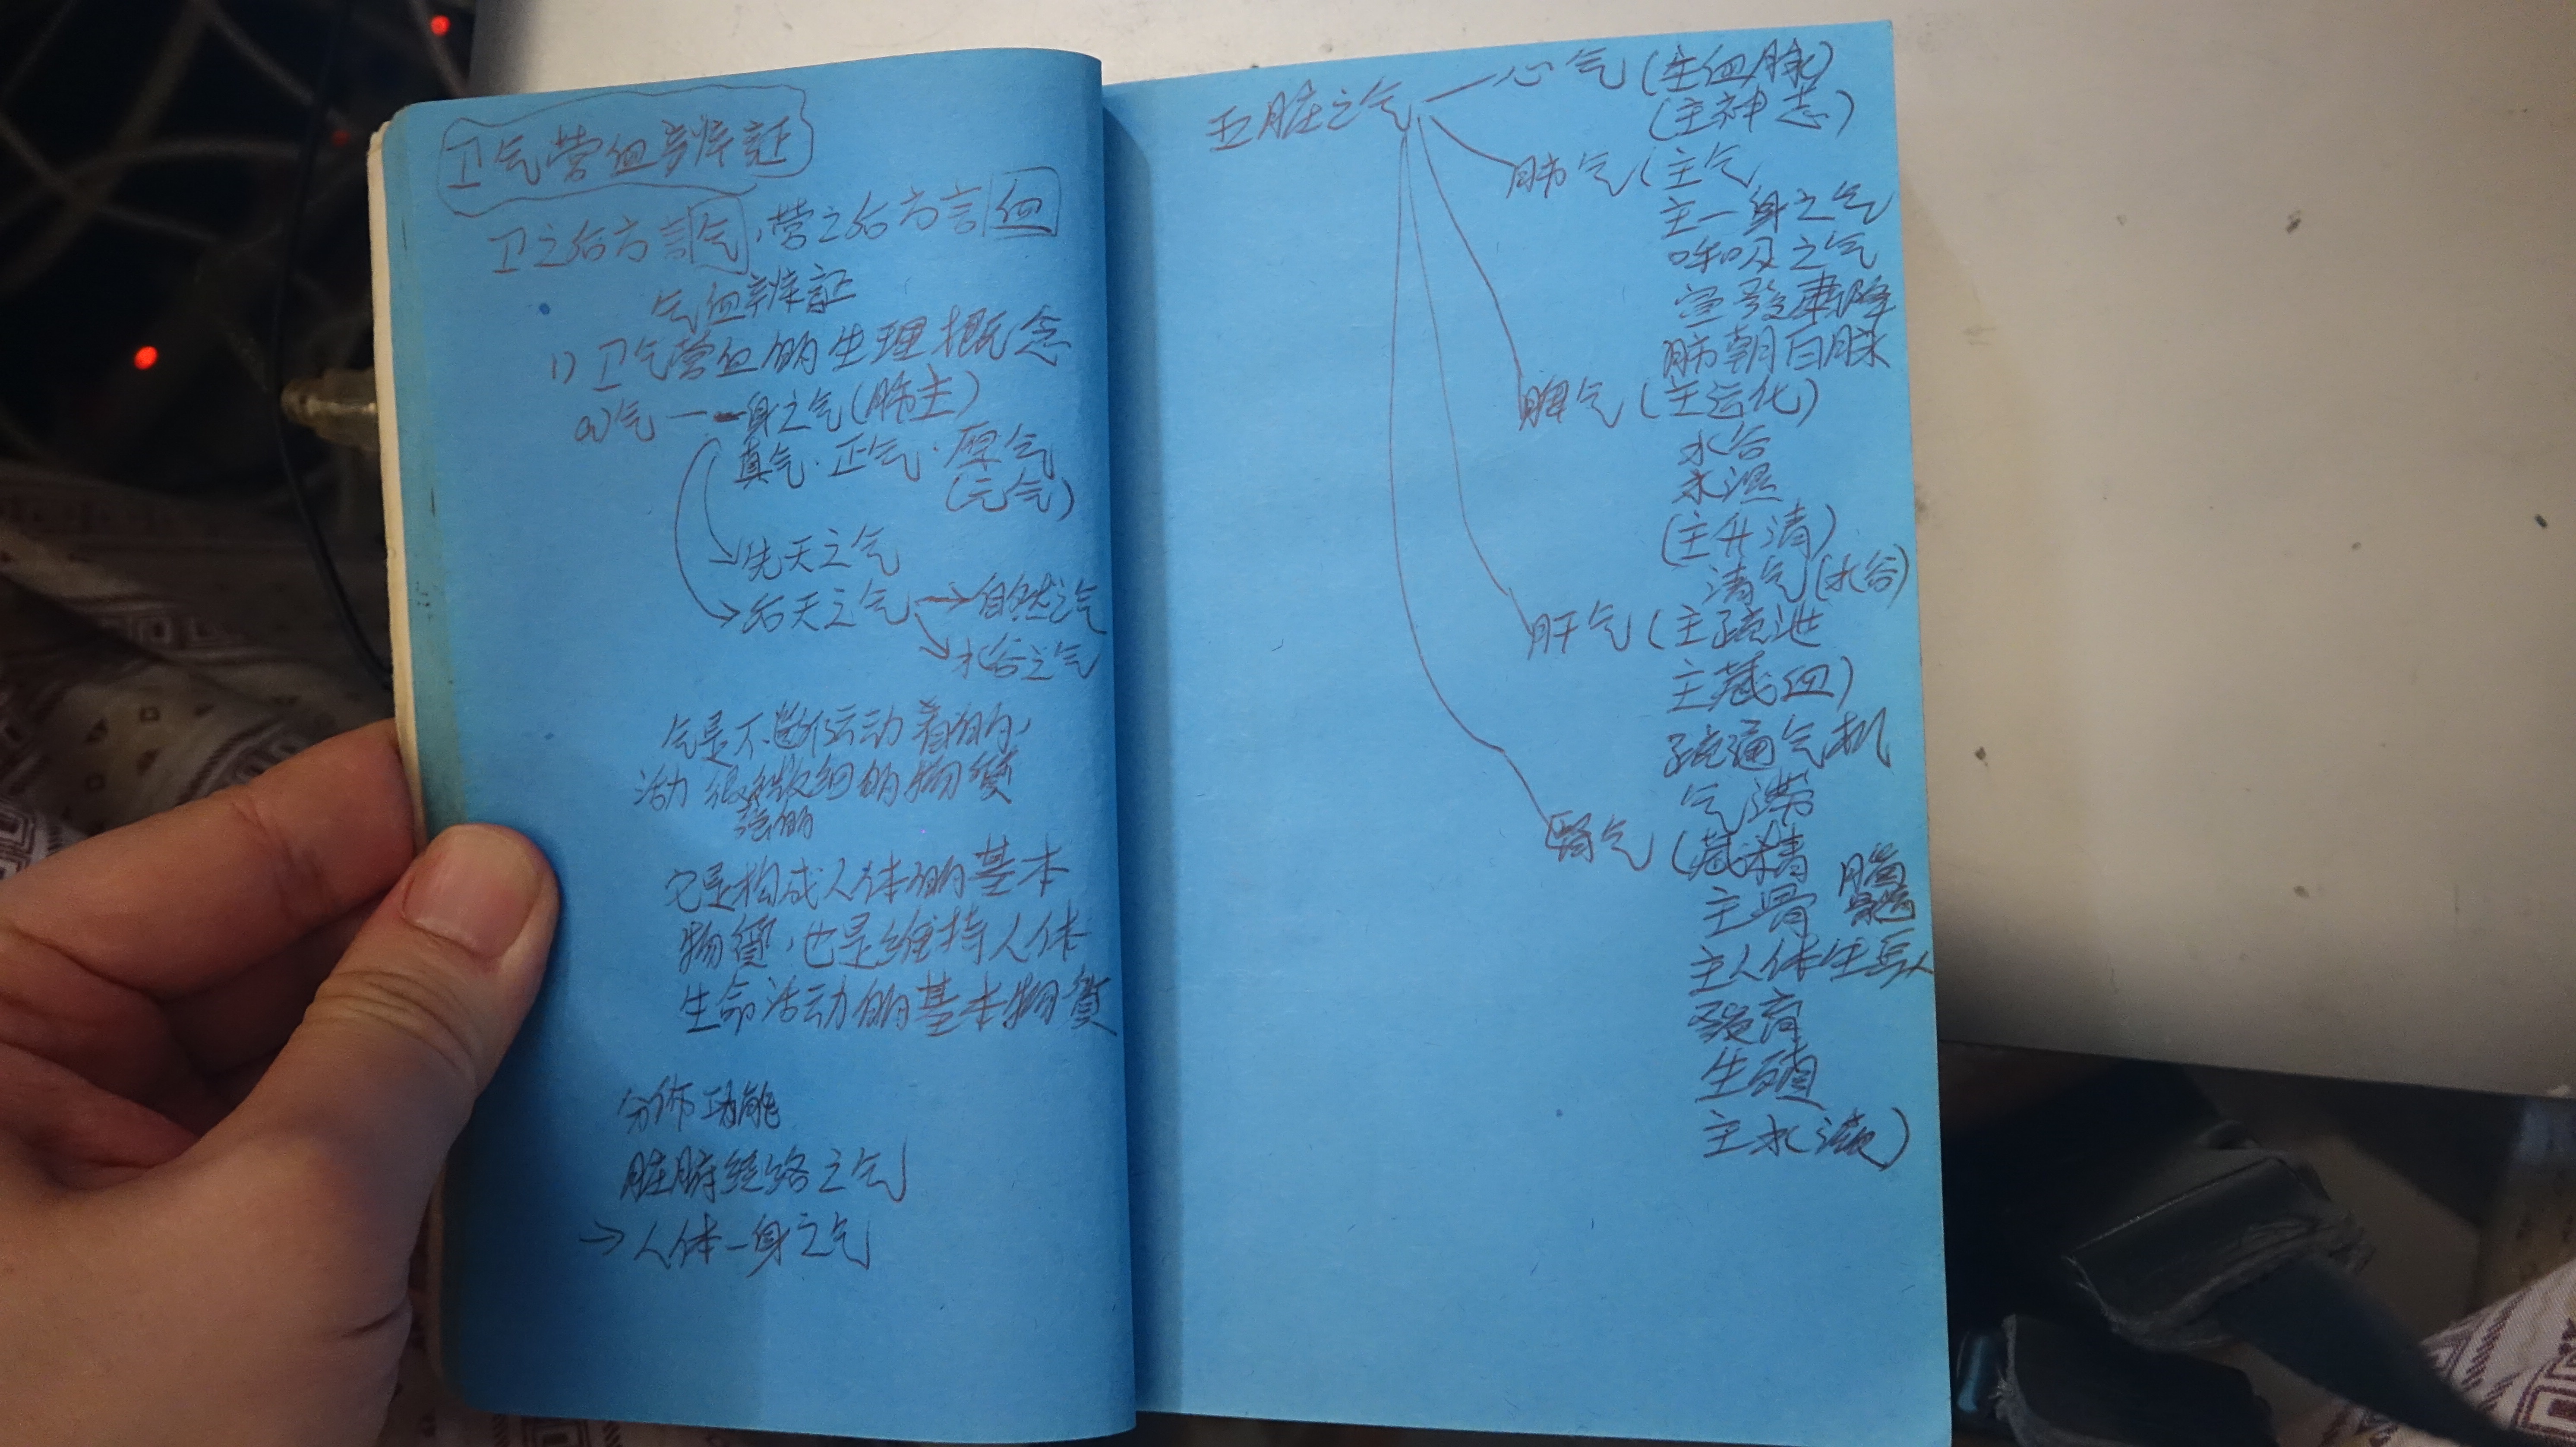 卫气营血辨証
卫之后方言气，营之后方言血
气血辨証
1) 卫气营血的生理概念
a)气 — 一身之气(肺主)
真气·正气·原气
(元气)
→先天之气
→后天之气→自然之气
→水谷之气
气是不断运动着的，
活力很微细的物質
强的
它是构成人体的基本
物質，也是维持人体
生命活动的基本物質
分佈功能
脏腑经络之气
→人体一身之气
五脏之气
心气(主血脉)
(主神志)
肺气(主气
主一身之气
呼吸之气
宣發肃降
肺朝百脉
脾气(主运化)
水谷
水湿
(主升清)
清气(水谷)
肝气(主疏泄
主藏血)
疏通气机
气滞
腎气(藏精
主骨 脑髓
主人体生長
發育
生殖
主水液)